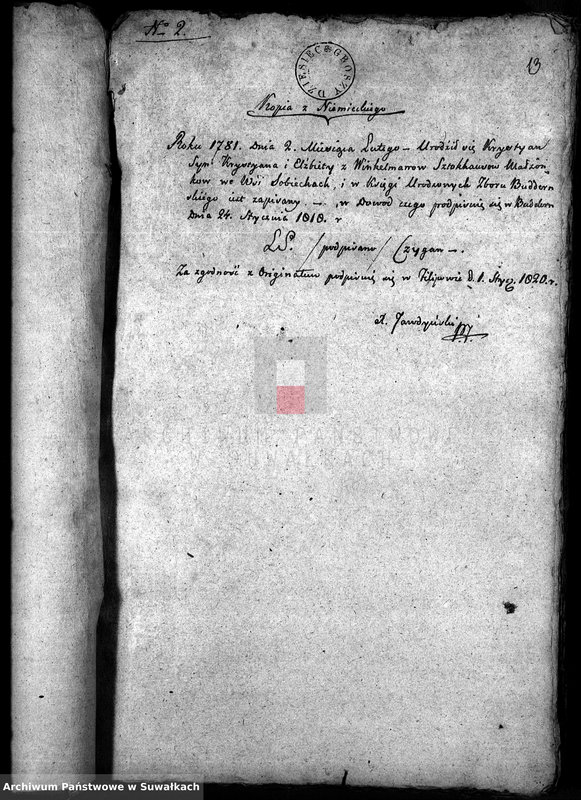 No 2.
13
DZIESIĘĆ GROSZY
Kopia z Niemieckiego
Roku 1781. Dnia 2. Miesiąca Lutego – Urodził się Krystyan
Syn Krystyana i Elżbiety z Winkelmanow Sztokhausow Małżon
kow we Wsi Sobiechach, i w Księgi Urodzonych Zboru Buddern
skiego iest zapisany. – w Dowod czego podpisuię się w Buddern
Dnia 24. Stycznia 1818. r
LS. /podpisano/ Czygan –.
Za zgodność z Originałem podpisuię się w Filipowie d. 1. Stycz. 1820. r.
A. Zawdzyński
ARCHIWUM PAŃSTWOWE
W SUWAŁKACH
Archiwum Państwowe w Suwałkach